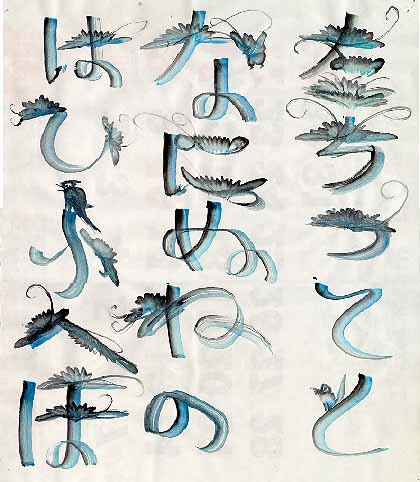 たちつてと
なにぬねの
はひふへほ